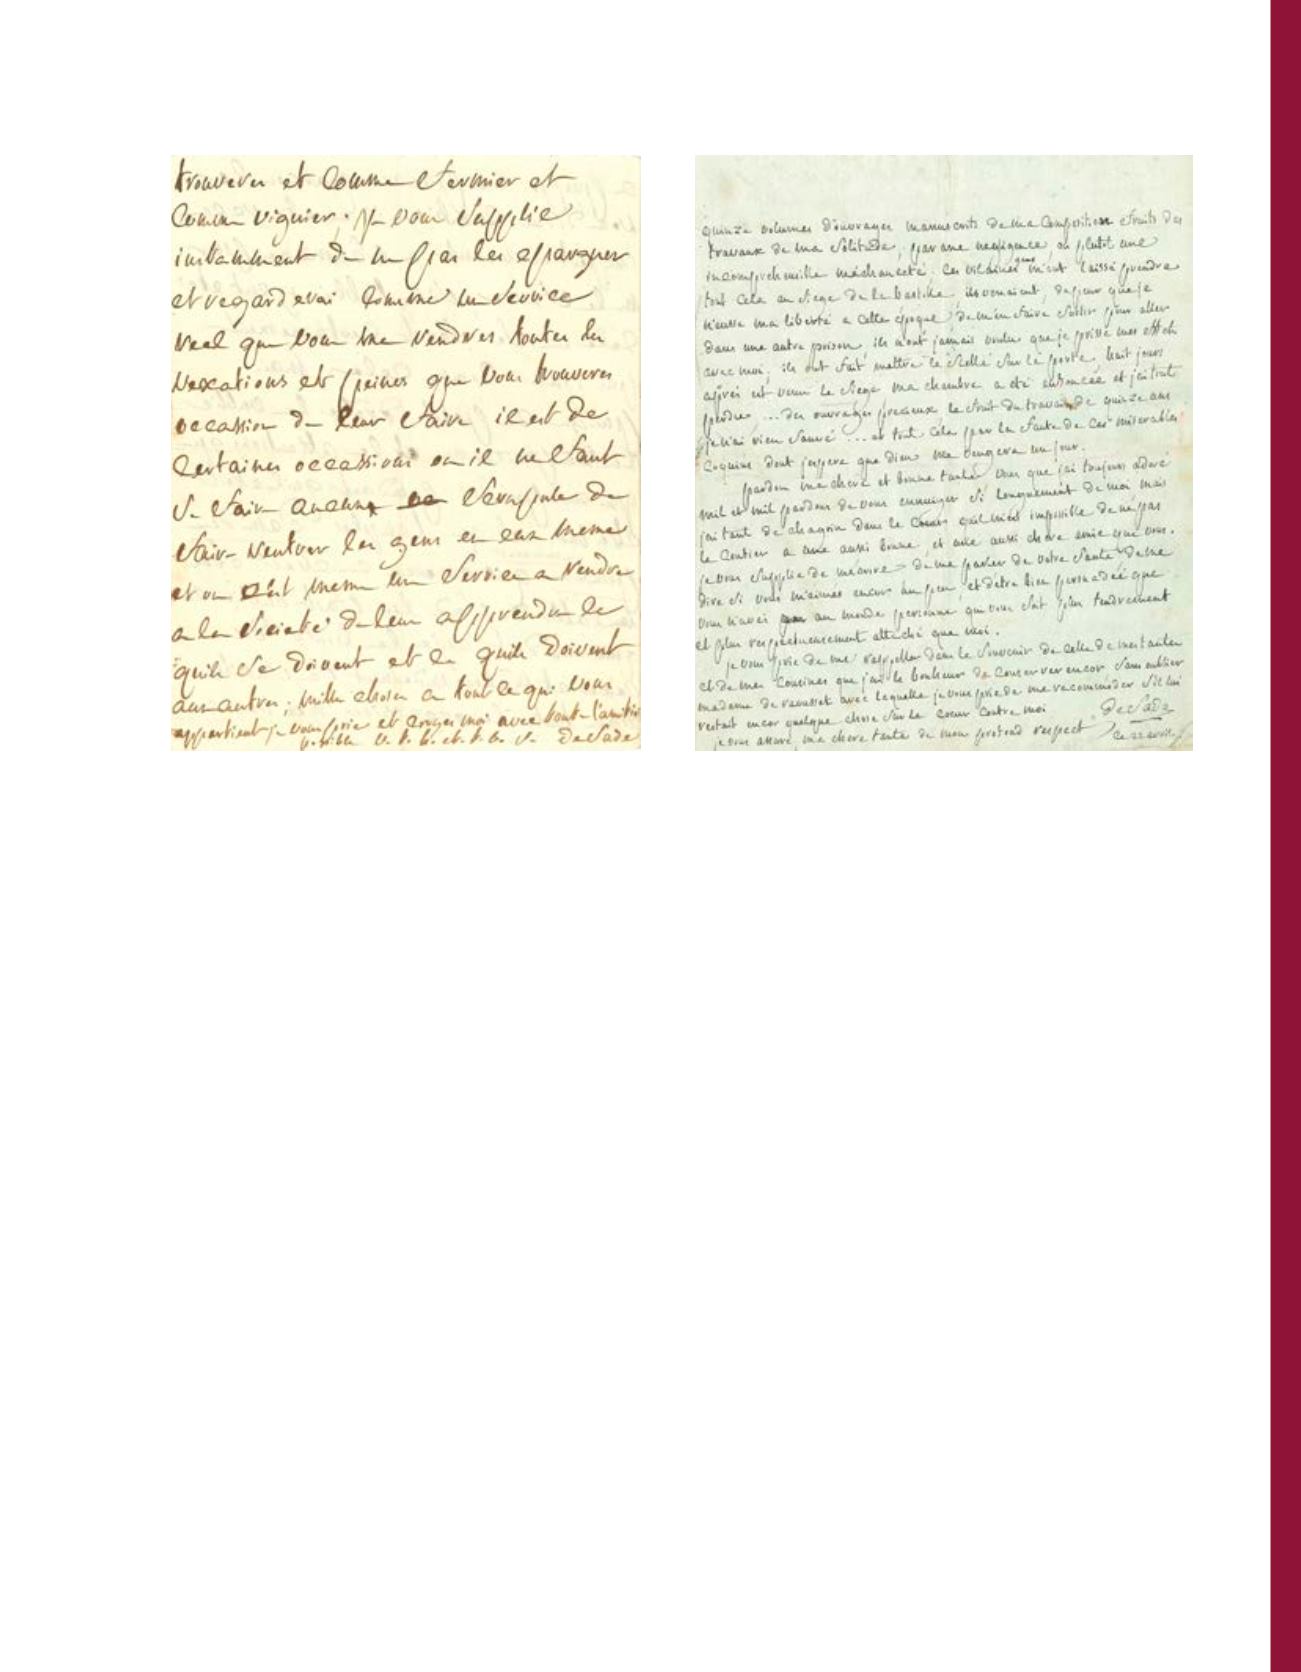 trouverer et comme fermier et
comme viguier. je vous supplie
instamment de ne pas les epargner
et regarderai comme un service
reel que vous me rendres toutes les
vexations et peines que vous trouveres
occassion de leur faire il est de
certaines occassions ou il ne faut
se faire aucun scrupule de
faire rentrer les gens en eux meme
et on c'est meme un service a rendre
a la societé de leur apprendre ce
quils se doivent et ce quils doivent
aux autres; mille choses a tout ce qui vous
appartient je vous prie et croyes moi avec toute l'amitie
possible v. t. h. et t. o. s. de Sade
quinze volumes d'ouvrages manuscrits de ma composition fruits des
travaux de ma solitude, par une negligence ou plutot une
incomprehensible méchanceté. ces vilaines gens m'ont laissé prendre
tout cela au siege de la bastille ils venaient, de peur que je
n'eusse ma liberté a cette époque de m'en faire sortir pour aller
dans une autre prison ils n'ont jamais voulu que je prisse mes effets
avec moi, ils ont fait mettre le scellé sur la porte, huit jours
après est venu le siege ma chambre a eté enfoncée et j'ai tout
perdu ... des ouvrages precieux le fruit du travail de quinze ans
je n'ai rien sauvé ... et tout cela par la faute de ces miserables
coquins dont j'espere que dieu me vengera un jour.
pardon ma chere et bonne tante vous que j'ai toujours adoré
mil et mil pardons de vous ennuyer si longuement de moi mais
j'ai tant de chagrin dans le coeur quil m'est impossible de ne pas
le confier a une aussi bonne, et une aussi chere amie que vous.
je vous supplie de m'ecrire de me parler de votre santé de me
dire si vous m'aimés encor un peu, et d'etre bien persuadée que
vous n'avés au monde personne qui vous soit plus tendrement
et plus respectueusement attaché que moi.
je vous prie de me rappeller dans le souvenir de celle de mes tantes
et de mes cousines que j'ai le bonheur de conserver encor sans oublier
madame de raousset avec laquelle je vous prie de me racommoder s'il lui
restait encor quelque chose sur le coeur contre moi
je vous assure ma chere tante de mon profond respect de Sade
ce 22 avril